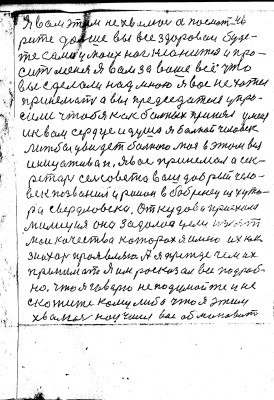 Я вам этим не хвалюсь а посмот-
рите дальше вы все здоровы буде-
те сами у моих ног на
сить меня я вам за ваше всё что
вы сделали надмною я вас не хотел
принемать а вы председателя упро-
сили чтобя как больных принял у меня
и к вам сердце и душа я больной человек
либо увидет больного моё в этом вся
инициатива. Я вас принемал а сек-
ретарь сельсовета ваш добрий чело-
век позвонил и
ра свердловска. Откудова приехала
милиция она задолго
мои качества которая я имею их как
знахар проявляю. А я прежде чем их
принимать я им росказал все подроб-
но. что я говарю не подумойте и не
скожите кому либо что я этим
хвалюсь научился вас обманивать